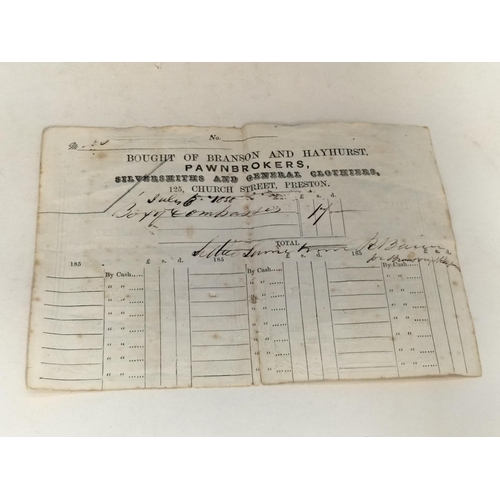 No.
BOUGHT OF BRANSON AND HAYHURST,
PAWNBROKERS,
SILVERSMITHS AND GENERAL CLOTHIERS,
125, CHURCH STREET, PRESTON.
July
£ s. d.
Box of Compasses
TOTAL
Settled same time
185 £ s. d. 185 £ s. d.
By Cash...... By Cash...... By Cash......
" " ...... " " ...... " " ......
" " ...... " " ...... " " ......
" " ...... " " ...... " " ......
" " ...... " " ...... " " ......
" " ...... " " ...... " " ......
" " ...... " " ...... " " ......
" " ...... " " ...... " " ......
" " ...... " " ...... " " ......